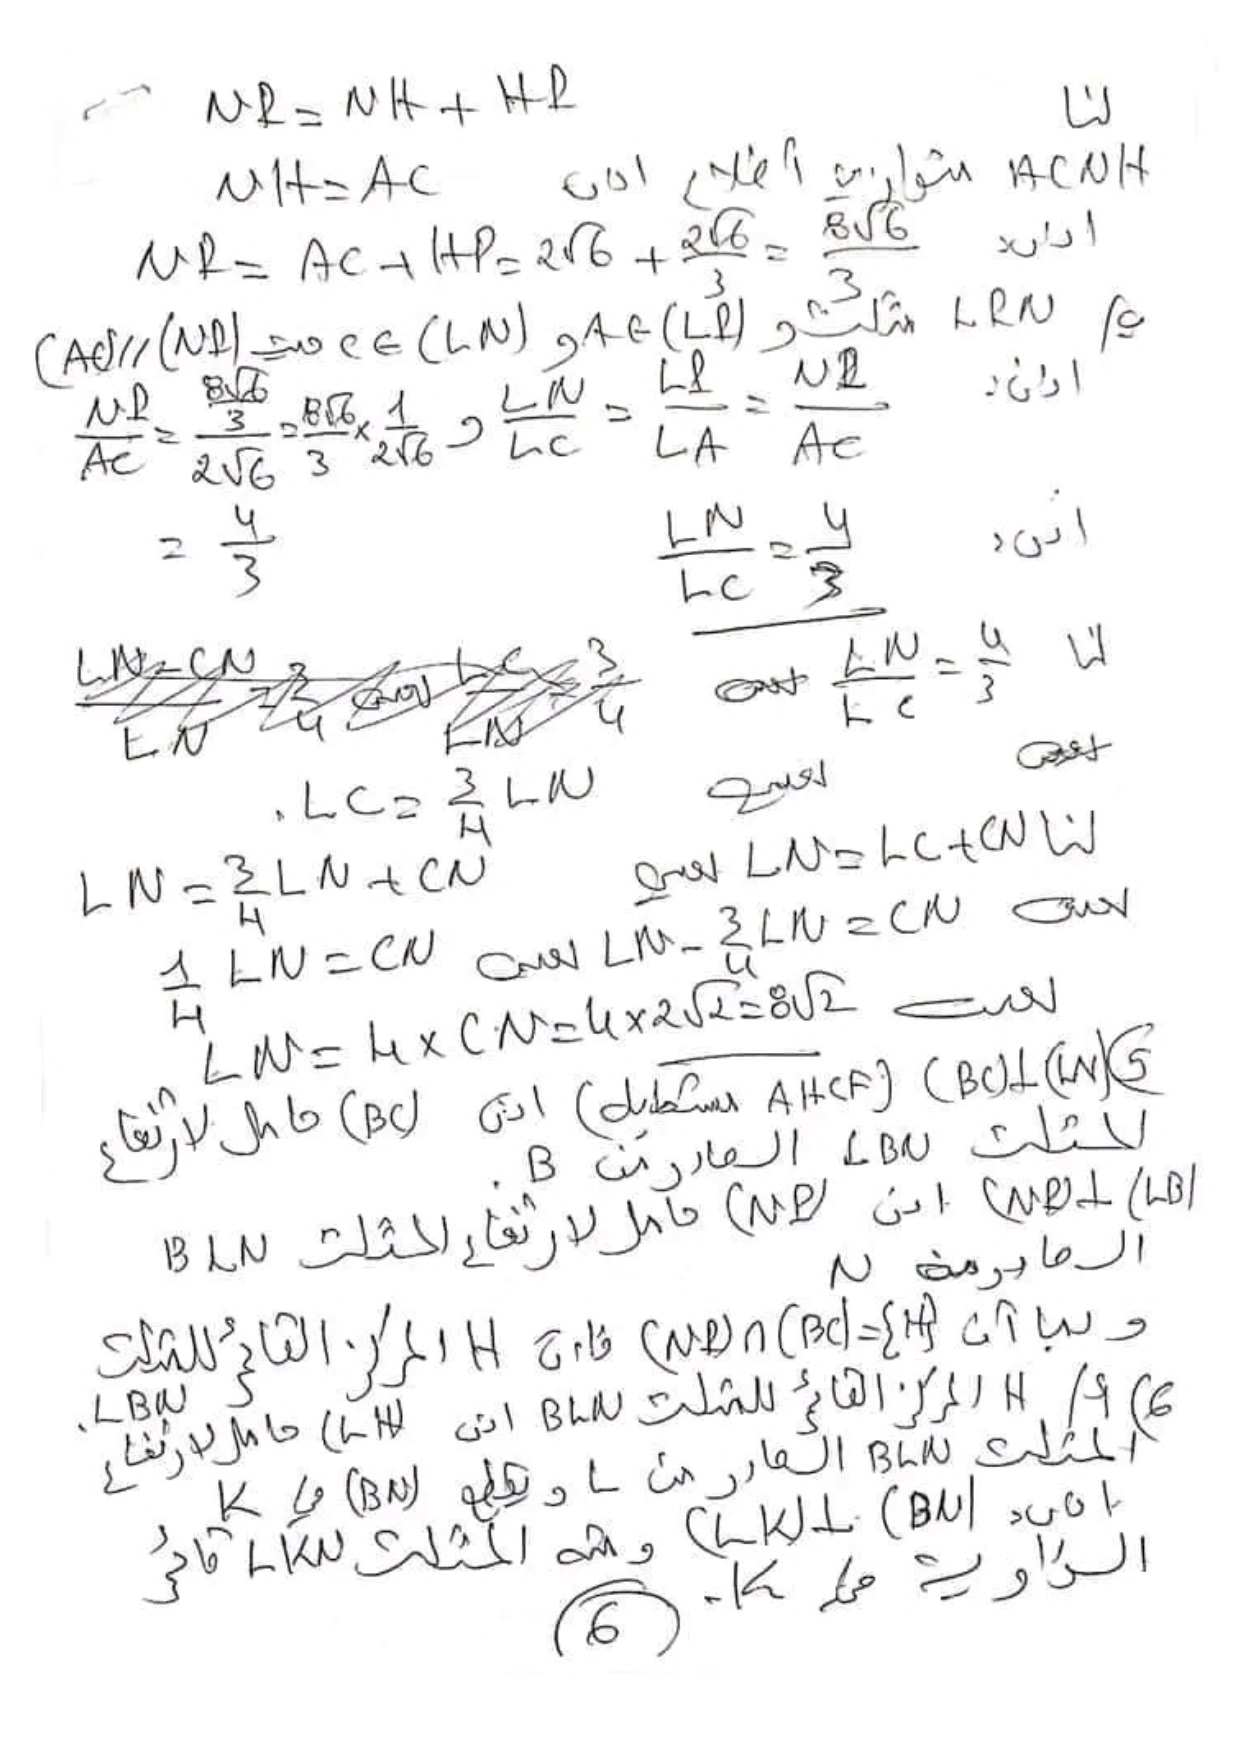 لنا NR = NH + HR
ACNH متوازي أضلاع اذن NH = AC
اذن: NR = AC + HR = 2√6 + 2√6/3 = 8√6/3
LRN مثلث و A∈(LR) و C∈(LN) حيث (AC)//(NR)
اذن: LN/LC = LR/LA = NR/AC و NR/AC = (8√6/3)/(2√6) = 8√6/3 × 1/2√6
= 4/3
اذن: LN/LC = 4/3
لنا LN/LC = 4/3
يعني LC = 3/4 LN.
لنا LN = LC + CN يعني LN = 3/4 LN + CN
يعني LN - 3/4 LN = CN يعني 1/4 LN = CN
يعني LN = 4 × CN = 4 × 2√2 = 8√2
5) (BC)⊥(LN) (AHCF مستطيل) اذن (BC) حامل لارتفاع
للمثلث LBN الصادر من B.
(NR)⊥(LB) اذن (NR) حامل لارتفاع المثلث BLN
الصادر من N
و بما أن (NR)∩(BC)={H} فإن H المركز القائم للمثلث
LBN.
6) أ/ H المركز القائم للمثلث BLN اذن (LH) حامل لارتفاع
المثلث BLN الصادر من L و يقطع (BN) في K
اذن: (LK)⊥(BN) و منه المثلث LKN قائم
الزاوية في K.
6